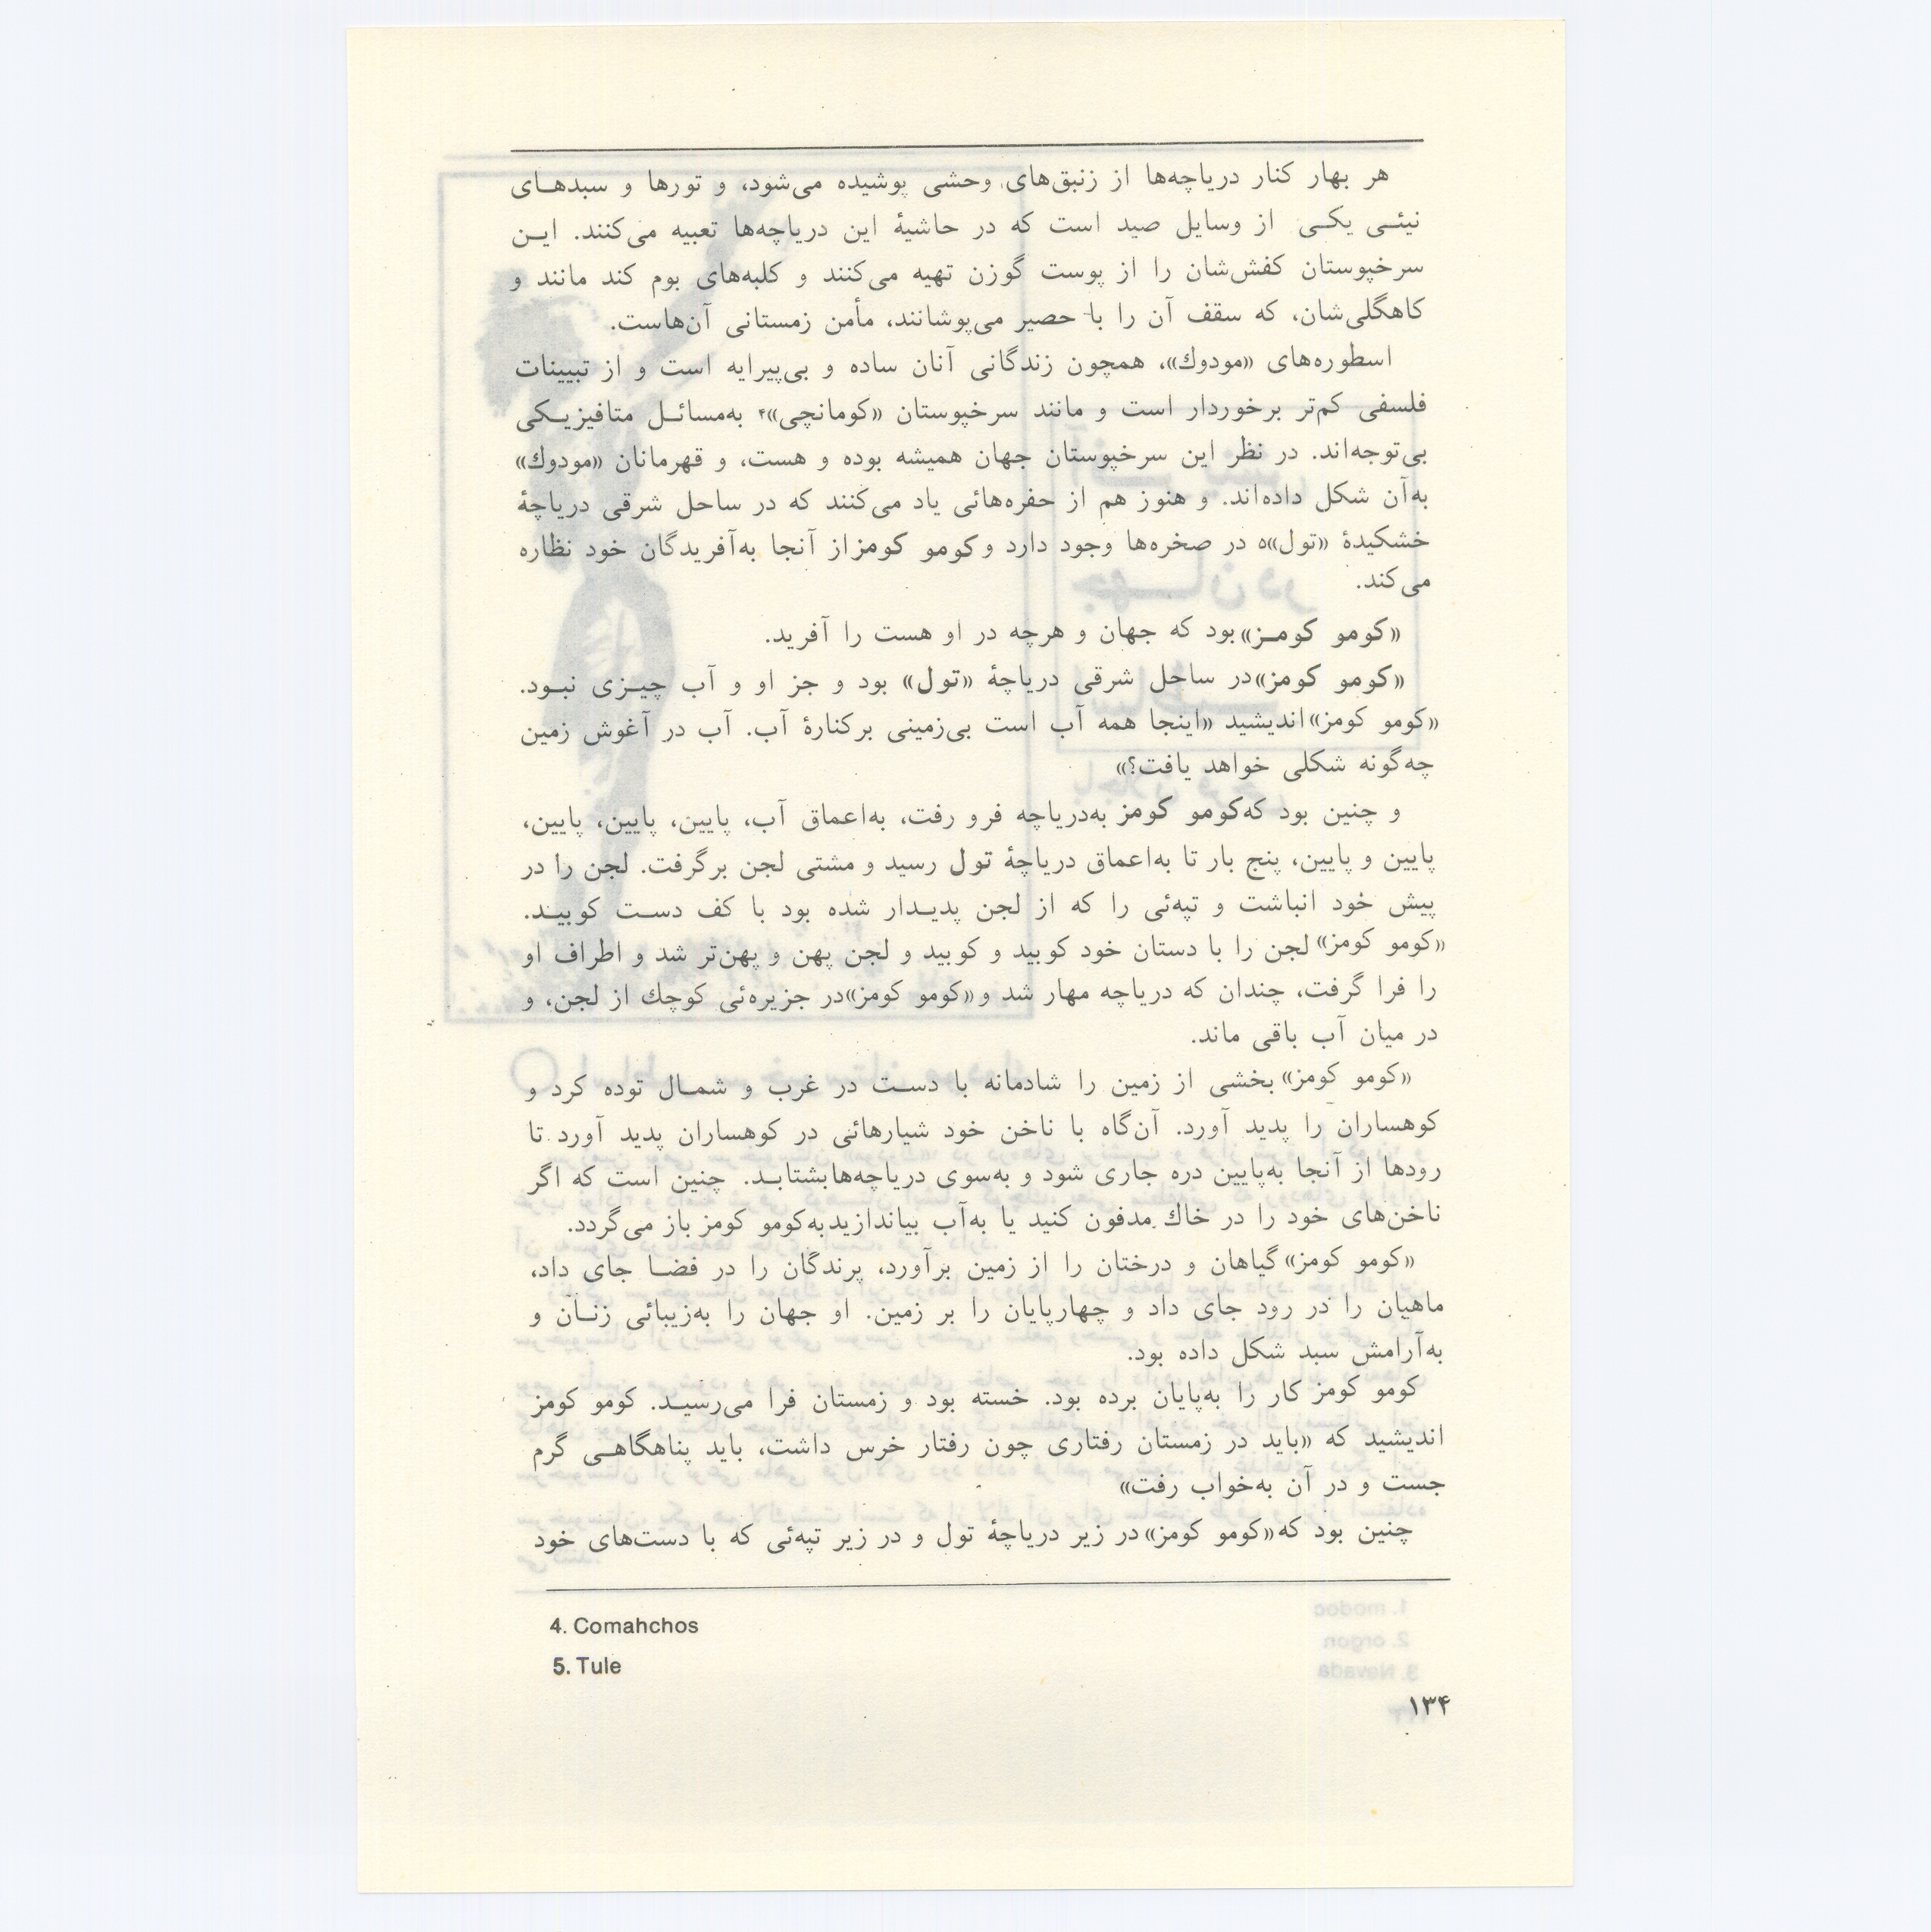 هر بهار کنار دریاچه‌ها از زنبق‌های وحشی پوشیده می‌شود، و تورها و سبدهـای
نیئـی یکـی از وسایل صید است که در حاشیهٔ این دریاچه‌ها تعبیه می‌کنند. ایـن
سرخپوستان کفش‌شان را از پوست گوزن تهیه می‌کنند و کلبه‌های بوم کند مانند و
کاهگلی‌شان، که سقف آن را با حصیر می‌پوشانند، مأمن زمستانی آن‌هاست.
اسطوره‌های «مودوك»، همچون زندگانی آنان ساده و بی‌پیرایه است و از تبیینات
فلسفی کم‌تر برخوردار است و مانند سرخپوستان «کومانچی»۴ به‌مسائـل متافیزیـکی
بی‌توجه‌اند. در نظر این سرخپوستان جهان همیشه بوده و هست، و قهرمانان «مودوك»
به‌آن شکل داده‌اند. و هنوز هم از حفره‌هائی یاد می‌کنند که در ساحل شرقی دریاچهٔ
خشکیدهٔ «تول»۵ در صخره‌ها وجود دارد و کومو کومز از آنجا به‌آفریدگان خود نظاره
می‌کند.
«کومو کومـز» بود که جهان و هرچه در او هست را آفرید.
«کومو کومز» در ساحل شرقی دریاچهٔ «تول» بود و جز او و آب چیـزی نبـود.
«کومو کومز» اندیشید «اینجا همه آب است بی‌زمینی برکنارهٔ آب. آب در آغوش زمین
چه‌گونه شکلی خواهد یافت؟»
و چنین بود که کومو کومز به‌دریاچه فرو رفت، به‌اعماق آب، پایین، پایین، پایین،
پایین و پایین، پنج بار تا به‌اعماق دریاچهٔ تول رسید و مشتی لجن برگرفت. لجن را در
پیش خود انباشت و تپه‌ئی را که از لجن پدیـدار شده بود با کف دسـت کوبیـد.
«کومو کومز» لجن را با دستان خود کوبید و کوبید و لجن پهن و پهن‌تر شد و اطراف او
را فرا گرفت، چندان که دریاچه مهار شد و «کومو کومز» در جزیره‌ئی کوچك از لجن، و
در میان آب باقی ماند.
«کومو کومز» بخشی از زمین را شادمانه با دسـت در غرب و شمـال توده کرد و
کوهساران را پدید آورد. آن‌گاه با ناخن خود شیارهائی در کوهساران پدید آورد تا
رودها از آنجا به‌پایین دره جاری شود و به‌سوی دریاچه‌ها بشتابـد. چنین است که اگر
ناخن‌های خود را در خاك مدفون کنید یا به‌آب بیاندازید به‌کومو کومز باز می‌گردد.
«کومو کومز» گیاهان و درختان را از زمین برآورد، پرندگان را در فضـا جای داد،
ماهیان را در رود جای داد و چهارپایان را بر زمین. او جهان را به‌زیبائی زنـان و
به‌آرامش سبد شکل داده بود.
کومو کومز کار را به‌پایان برده بود. خسته بود و زمستان فرا می‌رسیـد. کومو کومز
اندیشید که «باید در زمستان رفتاری چون رفتار خرس داشت، باید پناهگاهـی گرم
جست و در آن به‌خواب رفت»
چنین بود که «کومو کومز» در زیر دریاچهٔ تول و در زیر تپه‌ئی که با دست‌های خود
4. Comahchos
5. Tule
۱۳۴